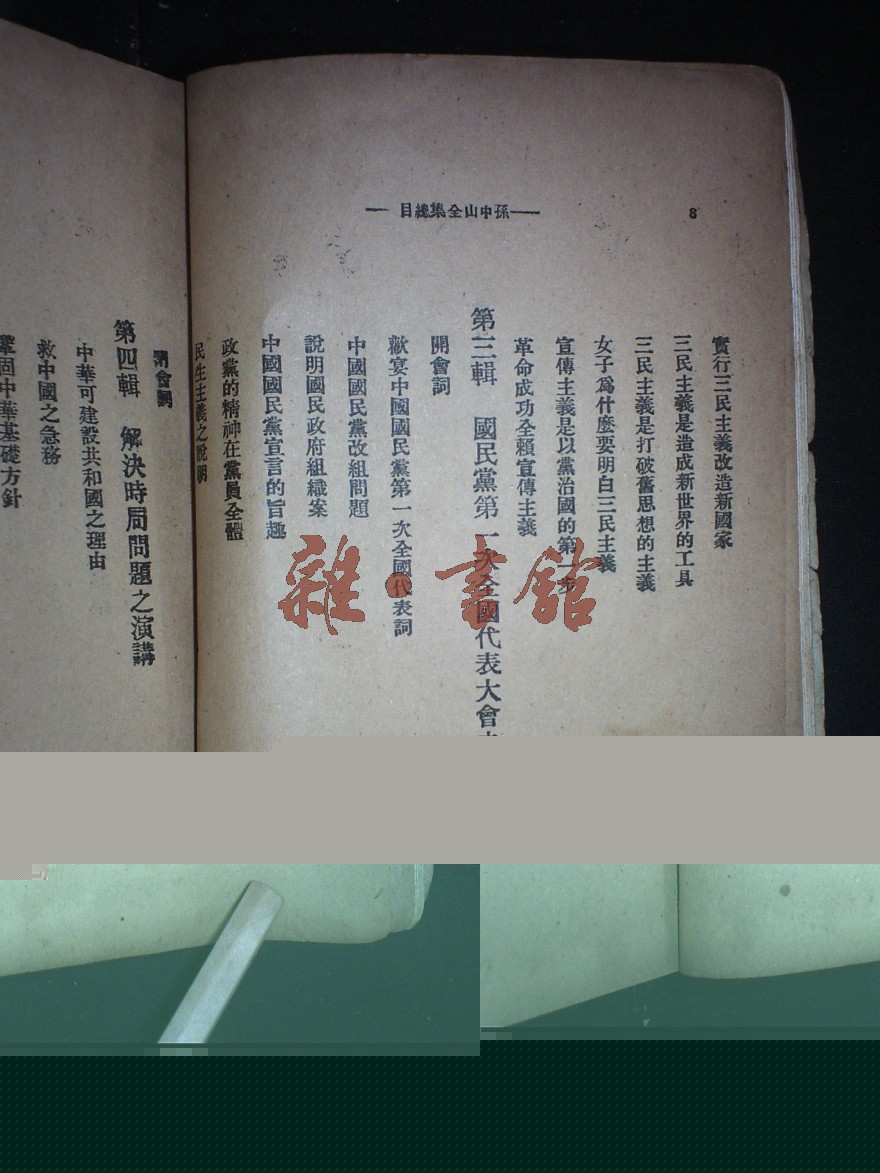 孫中山全集總目
8
實行三民主義改造新國家
三民主義是造成新世界的工具
三民主義是打破舊思想的主義
女子爲什麼要明白三民主義
宣傳主義是以黨治國的第一步
革命成功全賴宣傳主義
第三輯 國民黨第一次全國代表大會
開會詞
歡宴中國國民黨第一次全國代表詞
中國國民黨改組問題
說明國民政府組織案
中國國民黨宣言的旨趣
政黨的精神在黨員全體
民生主義之說明
閉會詞
第四輯 解決時局問題之演講
中華可建設共和國之理由
救中國之急務
鞏固中華基礎方針
雜·書館